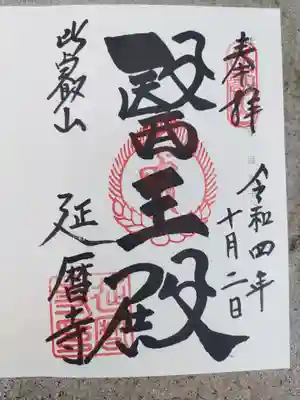 奉拝
令和四年
十月二日
醫王殿
比叡山
延暦寺